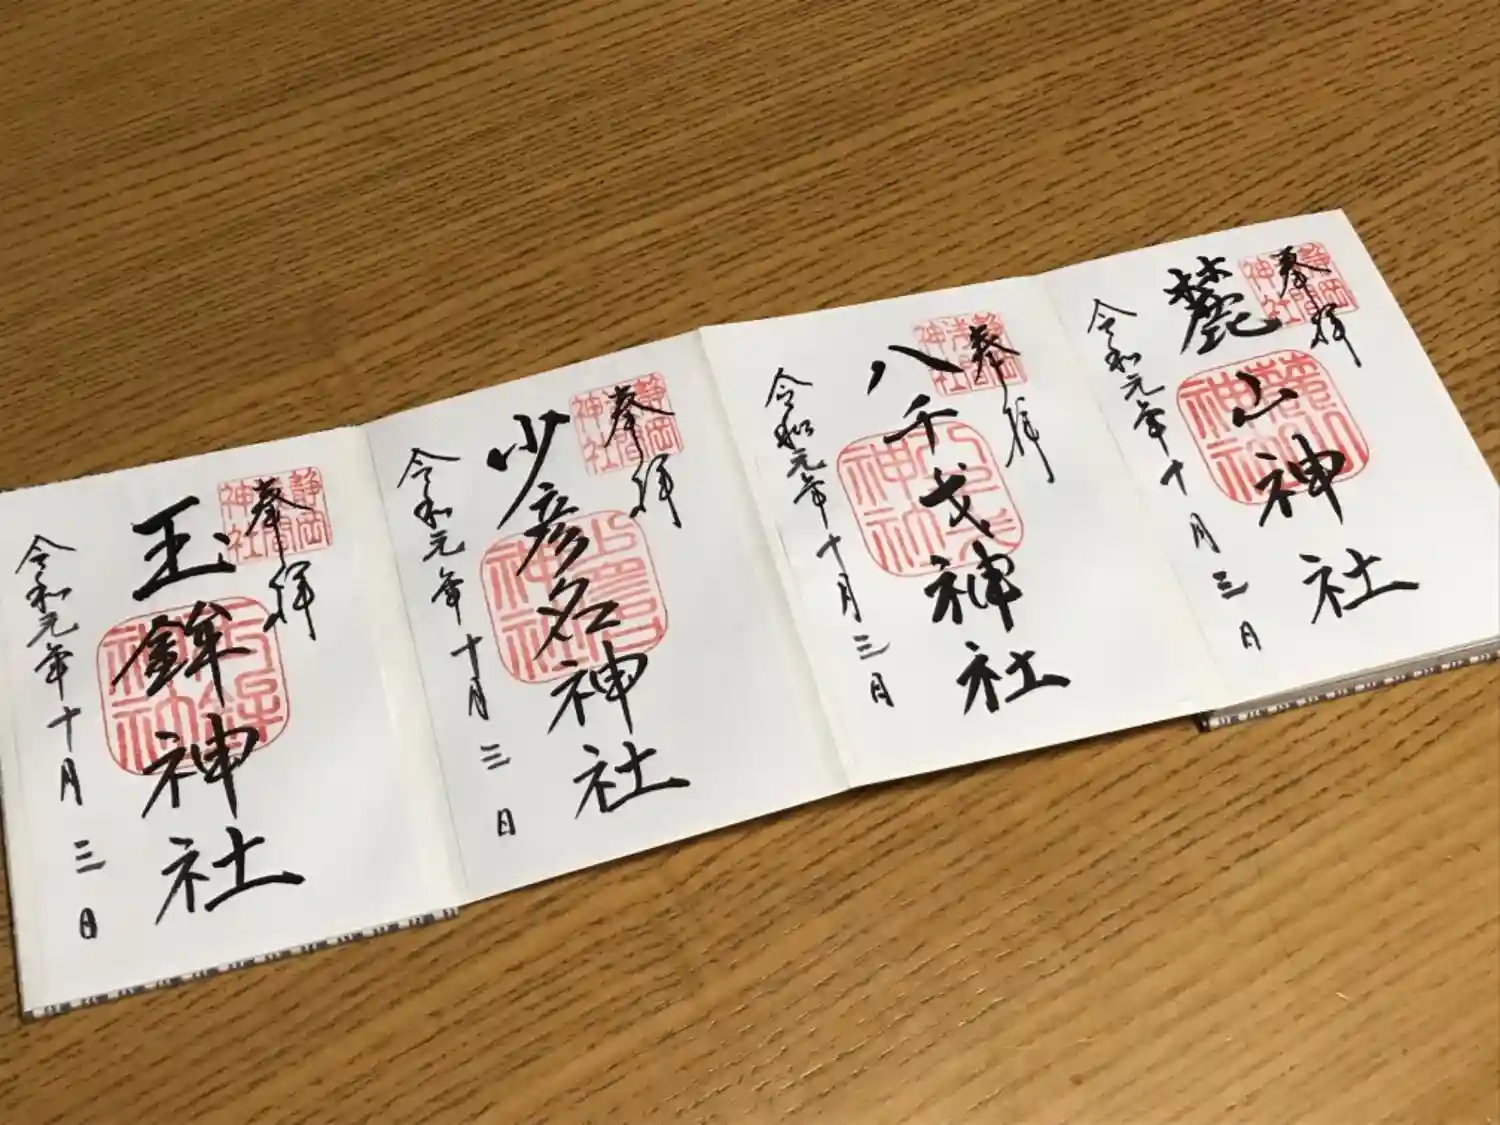 奉拝
静岡浅間神社
麓山神社
麓山神社
令和元年十月三日
奉拝
静岡浅間神社
八千戈神社
令和元年十月三日
奉拝
静岡浅間神社
少彦名神社
令和元年十月三日
奉拝
静岡浅間神社
玉鉾神社
玉鉾神社
令和元年十月三日